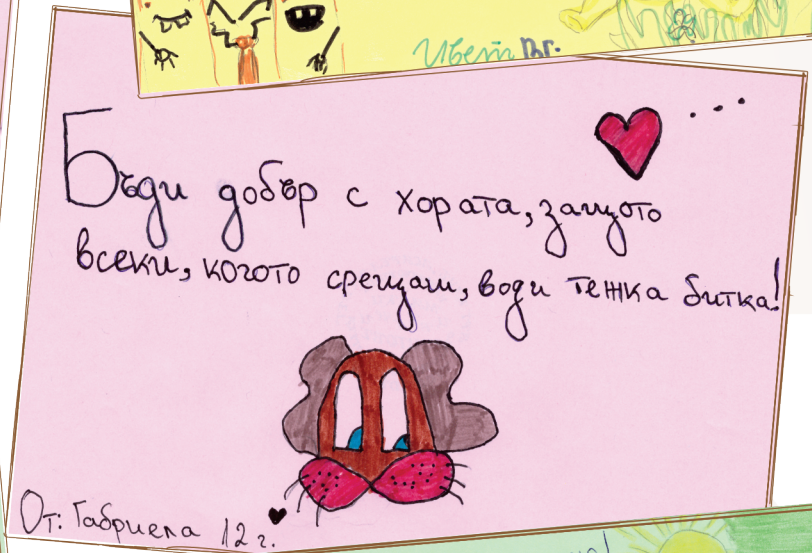 Цвети
Бъди добър с хората, защото
всеки, когото срещаш, води тежка битка!
От: Габриела 12 г.